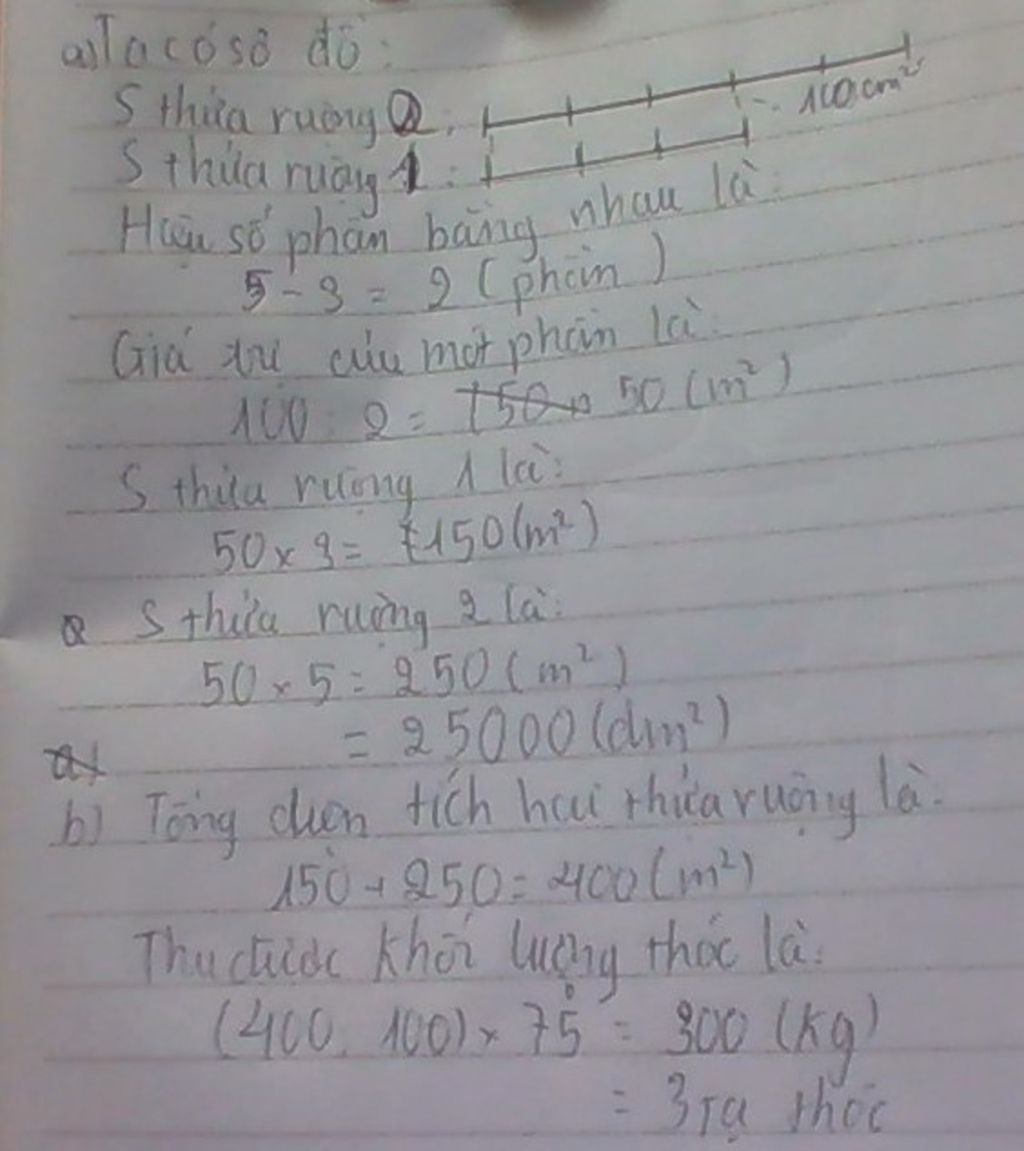 a) Ta có sơ đồ:
S thửa ruộng 2:
100cm²
S thửa ruộng 1:
Hiệu số phần bằng nhau là:
5 - 3 = 2 (phần)
Giá trị của một phần là:
100 : 2 = 150 50 (m²)
S thửa ruộng 1 là:
50 x 3 = 150 (m²)
S thửa ruộng 2 là:
50 x 5 = 250 (m²)
= 25000 (dm²)
a)
b) Tổng diện tích hai thửa ruộng là:
150 + 250 = 400 (m²)
Thu được khối lượng thóc là:
(400 : 100) x 75 = 300 (kg)
= 3 tạ thóc